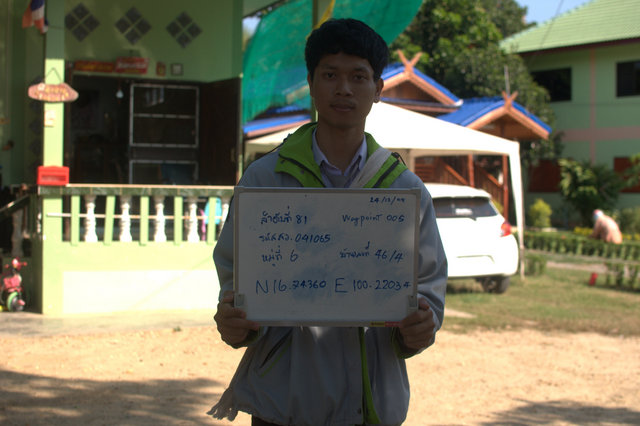 24/12/09
ลำดับที่ 81 Waypoint 005
รหัสคว. 041065
หมู่ที่ 6 บ้านเลขที่ 46/4
N16.74360 E 100.22034